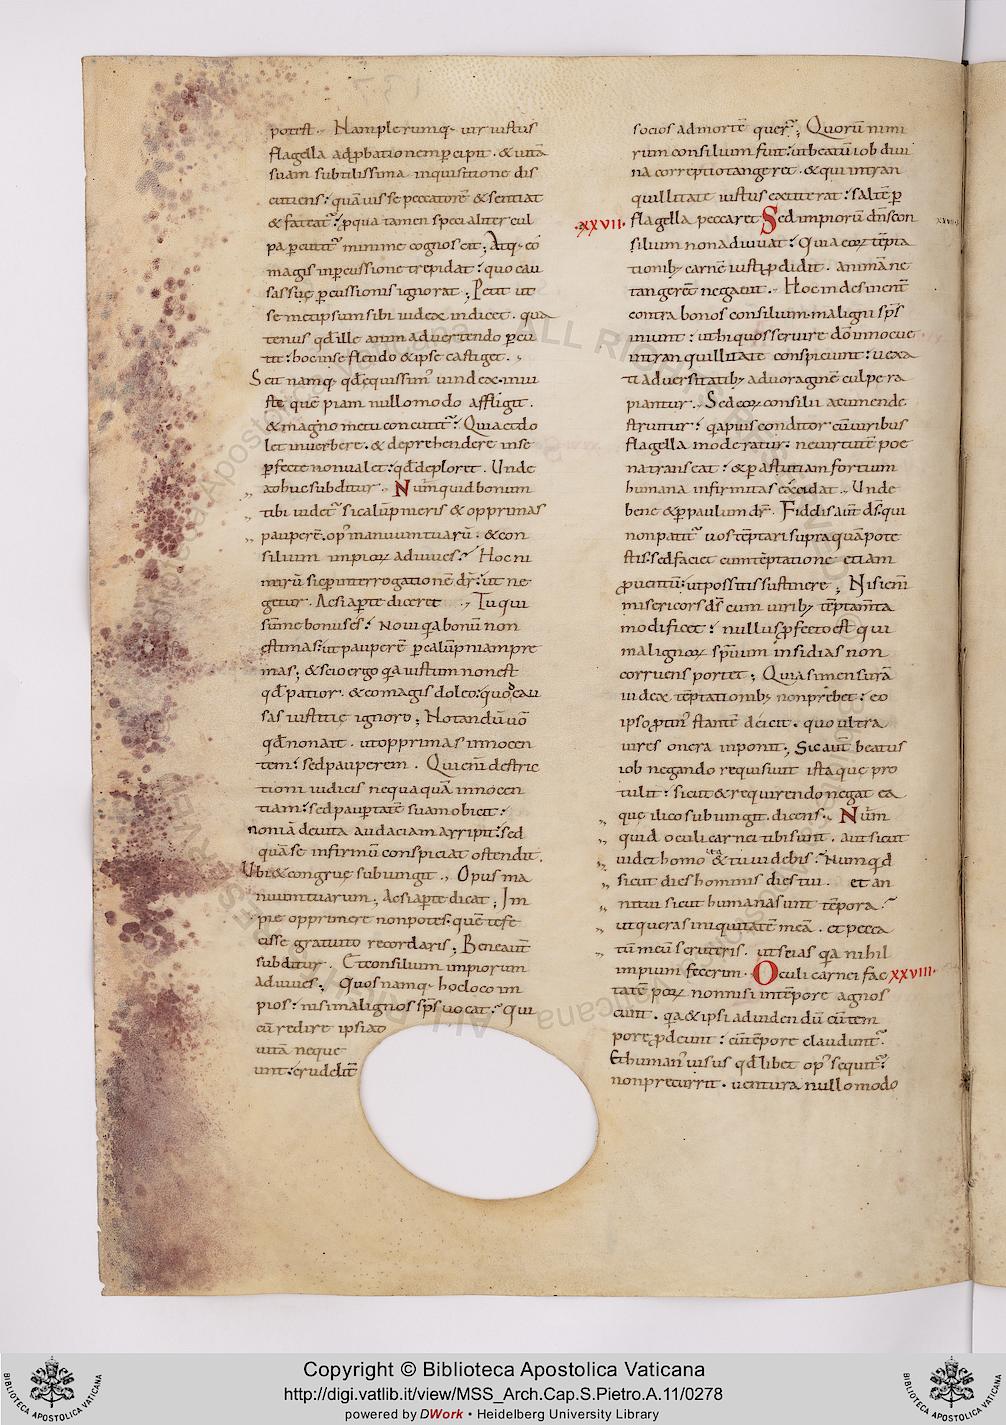 potest. Nam plerumq; uir iustus
flagella ad ꝓbationem ꝑcipit. & uitā
suam subtilissima inquisitione dis
cutiens: quāuis se peccatorē & sentiat
& fateat᷑: ꝓ qua tamen speci aliter cul
pa ꝑcutit᷑ minime cognoscit; Atq; eo
magis in ꝑcussione trepidat: quo cau
sas suę ꝑcussionis ignorat; Petit ut
se metipsum sibi iudex indicet. qua
tenus qđ ille animaduertendo ꝑcu
tit: hoc in se flendo & ipse castiget.
Scit namq; qđ ęquissim᷒ uindex. iniu
ste quē piam nullomodo affligit.
& magno metu concutit᷑: Quia et do
let in uerbere. & deprehendere in se
ꝑfecte non ualet: qđ deploret. Unde
adhuc subditur. Nūmquid bonum
tibi uidet᷑ si calūpnieris & opprimas
pauperē. op᷒ manuum tuarū. & con
silium impioꝝ adiuues? Hoc ni
mirū sic ꝑ interrogationē dr̄: ut ne
getur. Ac si aꝑte diceret. Tu qui
sūme bonus es: Noui qa bonū non
ęstimas: ut pauperē ꝑ calūpniam pre
mas; & scio ergo qa iustum non est
qđ patior. & eo magis doleo: quo cau
sas iustitię ignoro; Notandū uō
qđ non ait. ut opprimas innocen
tem: sed pauperem. Qui eni distric
tioni iudicis nequaquā innocen
tiam: sed pauꝑtatē suam obicit:
non iā de uita audaciam arripit: sed
quā se infirmū conspiciat ostendit.
Ubi & congruę subiungit. Opus ma
nuum tuarum; Ac si aꝑte dicat; Im
pie opprimere non potes. quē te fe
cisse gratuito recordaris; Bene aut̄
subditur. Et consilium impiorum
adiuues; Quos namq; hoc loco im
pios: nisi malignos sp̄s uocat? Qui
cū redire ipsi ad
uitā neque
unt: crudelit᷑
socios ad mortē quer᷑; Quorū nimi
rum consilium fuit: ut beatū iob diui
na correptio tangeret. & qui in tran
quillitate iustus extiterat: saltē ꝑ
·xxvii· flagella peccaret Sed impiorū dn̄s con xxvii
silium non adiuuat: Quia eoꝝ tēpta
tionibȝ carnē iusti ꝓdidit. animā ne
tangerēt negauit. Hoc indesinent
contra bonos consilium maligni sp̄s
iniunt: ut hi quos seruire dō innocue
in tranquillitate conspiciunt: uexa
ti aduersitatibȝ ad uoraginē culpe ra
piantur. Sed eoꝝ consilii acumen de
struitur: qa pius conditor cū uiribus
flagella moderatur: ne uirtutē poe
na transeat: & ꝑ astutiam fortium
humana infirmitas excidat. Unde
bene & ꝑ paulum dr̄. Fidelis aut̄ dꝭ. qui
non patit᷑ uos tēptari supra quā pote
stis: sed faciet cum tēptatione etiam
ꝓuentū: ut possitis sustinere; Nisi eni
misericors dꝭ cum uiribȝ tēptam̄ta
modificet: nullus ꝓfecto est qui
malignoꝝ sp̄uum insidias non
corruens portet; Quia si mensurā
iudex tēptationibȝ non p̄bet: eo
ipso ꝓtin᷒ stantē deicit. quo ultra
uires onera inponit; Sic aut̄ beatus
iob negando requisiuit ista quę pro
tulit: sicut & requirendo negat ea
quę ilico subiungit. dicens. Nūm
quid oculi carnei tibi sunt. aut sicut
uidet homo ita & tu uidebis? Numqđ
sicut dies hominis dies tui. et an
ni tui sicut humana sunt tēpora?
ut queras iniquitatē meā. et pecca
tū meū scruteris. ut scias qa nihil
impium fecerim. Oculi carnei fac xxviii·
ta tēpoꝝ non nisi in tēpore agnos
cunt. qa & ipsi ad uidendū cū tem
pore ꝓdeunt: cū tēpore claudunt᷑.
Et human᷒ uisus qđ libet op᷒ sequit᷑:
non precurrit. uentura nullomodo
Copyright © Biblioteca Apostolica Vaticana
http://digi.vatlib.it/view/MSS_Arch.Cap.S.Pietro.A.11/0278
powered by DWork • Heidelberg University Library
BIBLIOTECA APOSTOLICA VATICANA
BIBLIOTECA APOSTOLICA VATICANA